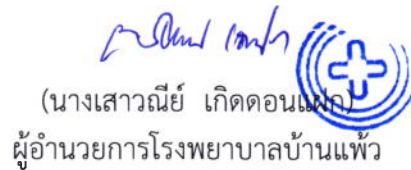 (นางเสาวณีย์ เกิดดอนแฝก)
ผู้อำนวยการโรงพยาบาลบ้านแพ้ว